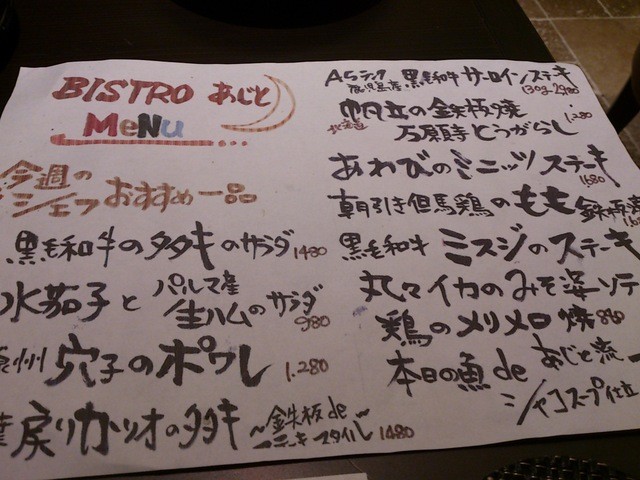 BISTRO あじと
MeNu
今週の
シェフ おすすめ一品
黒毛和牛のタタキのサラダ 1480
水茄子と パルマ産
生ハムのサラダ
980
穴子のポワレ 1.280
戻りカツオのタタキ ～鉄板de
スタイル～ 1480
A5ランク 黒毛和牛 サーロインステーキ
鹿児島産 130g 2980
帆立の鉄板焼 1.280
北海道 万願寺とうがらし
あわびのミニッツステーキ
1.580
朝引き但馬鶏のもも 鉄板焼
黒毛和牛 ミスジのステーキ
丸々イカのみそ ソテ
鶏のメリメロ焼 860
本日の魚de あじと流
シャコスープ仕立